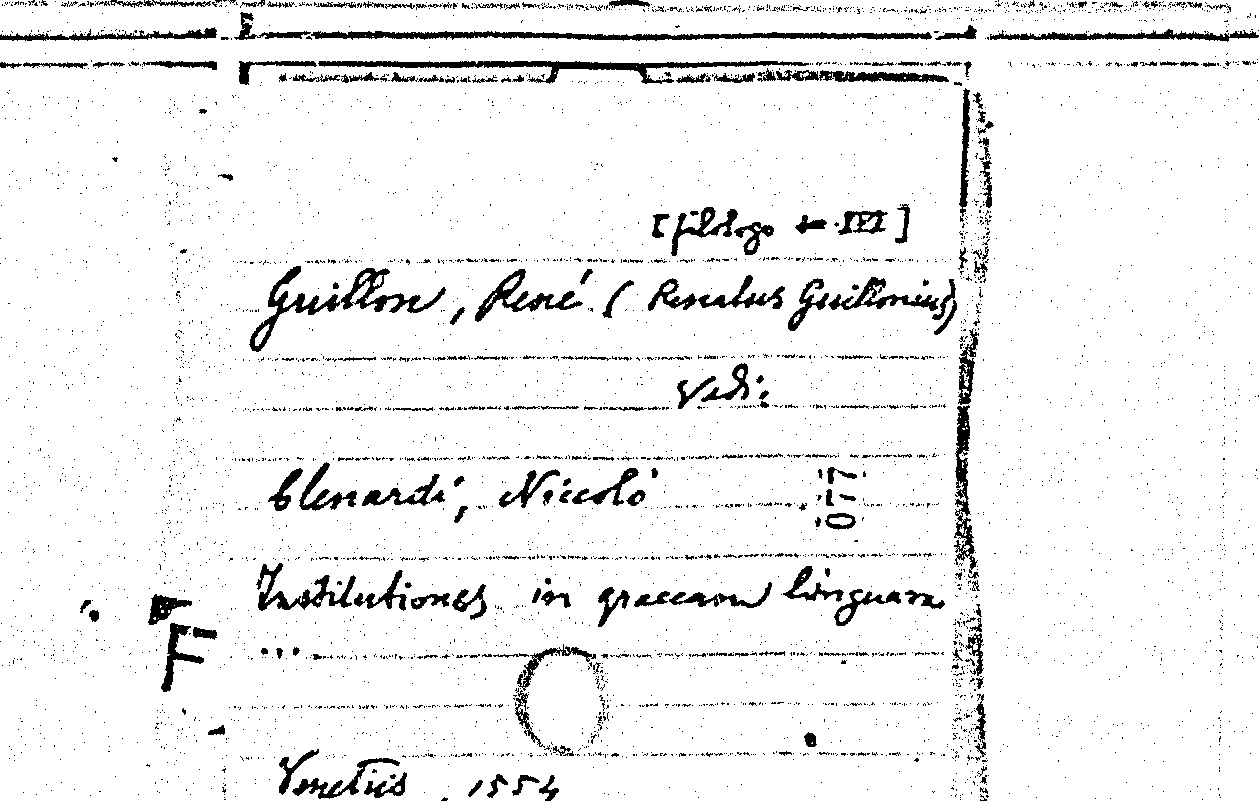 [filologo ← XVI]
Guillon, René (Renatus Guillonius)
Vedi:
Clenardi, Niccolò
077
Institutiones in graecam linguam
...
F
Venetiis, 1554